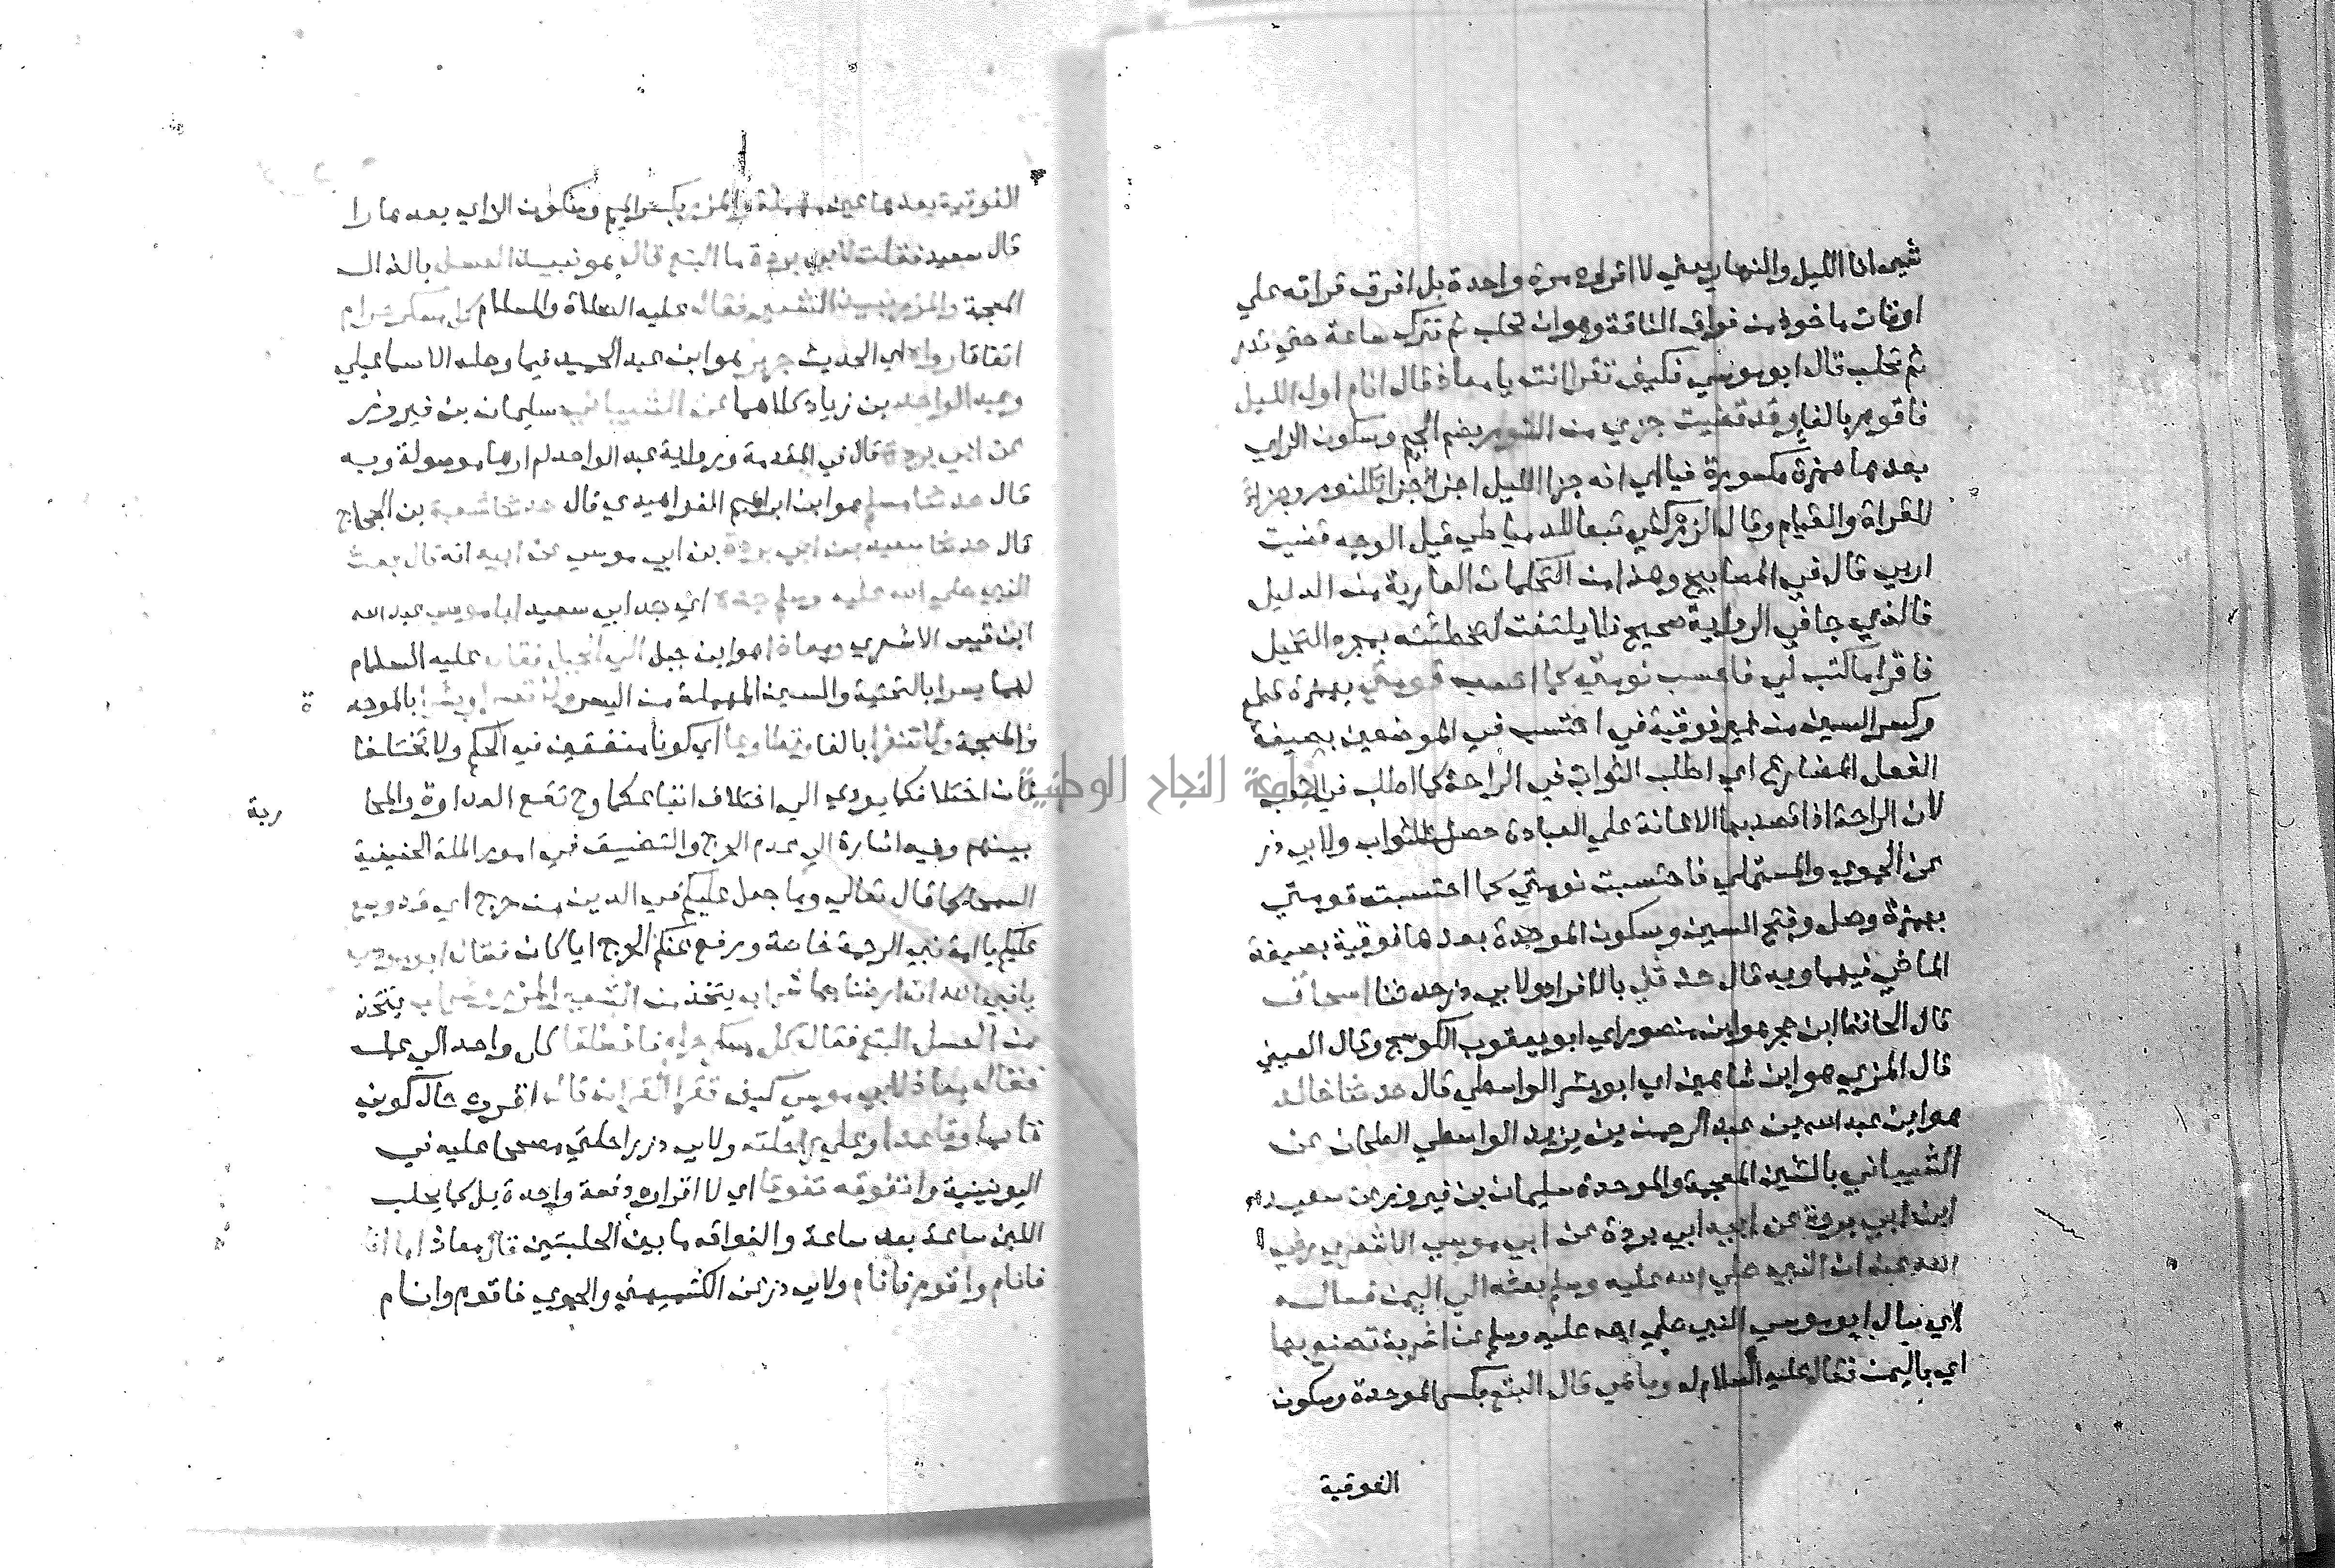 شي انا الليل والنهار يعني لا اقراوه مرة واحدة بل افرق قراته علي
اوقات ماخوذ من فواق الناقة وهو ان تحلب ثم تترك ساعة حتي تدر
ثم تحلب قال ابو موسي فكيف تقرا انت يا معاذ قال انام اول الليل
فاقوم بالفا وقد قضيت جزي من النوم بضم الجيم وسكون الزاي
بعدها همزة مكسورة فيا اي انه جزا الليل اجزا جزا للنوم وجزا
للقراة والقيام وقال الزركشي تبعا للدمياطي قيل الوجه قضيت
اربي قال في المصابيح وهذا من التحكمات العارية من الدليل
فالذي جا في الرواية صحيح فلا يلتفت لتخطئته بمجرد التخيل
فاقرا ما كتب لي فاحسب نومتي كما احسب قومتي بهمزة قطع
وكسر السين من غير فوقية في احتسب في الموضعين بصيغة
الفعل المضارع اي اطلب الثواب في الراحة كما اطلب في التعب
لان الراحة اذا قصد بها الاعانة علي العبادة حصل الثواب ولابي ذر
عن الحموي والمستملي فاحتسبت نومتي كما احتسبت قومتي
بهمزة وصل وفتح السين وسكون الموحدة بعدها فوقية بصيغة
الماضي فيهما وبه قال حدثني بالافراد ولابي ذر حدثنا اسحاق
قال الحافظ ابن حجر هو ابن منصور اي ابو يعقوب الكوسج وقال العيني
قال المزي هو ابن شاهين اي ابو بشر الواسطي قال حدثنا خالد
هو ابن عبد الله بن عبد الرحمن بن يزيد الواسطي الطحان عن
الشيباني بالشين المعجمة والموحدة سليمان بن فيروز عن سعيد
ابن ابي بردة عن ابيه ابي بردة عن ابي موسي الاشعري رضي
الله عنه ان النبي صلي الله عليه وسلم بعثه الي اليمن فساله
اي سال ابو موسي النبي صلي الله عليه وسلم عن اشربة تصنع بها
اي باليمن فقال عليه السلام له وما هي قال البتع بكسر الموحدة وسكون
الفوقية
الفوقية بعدها عين مهملة والمزر بكسر الميم وسكون الزاي بعدها را
قال سعيد فقلت لابي بردة ما البتع قال هو نبيذ العسل بالذال
المعجمة والمزر نبيذ الشعير فقال عليه الصلاة والسلام كل مسكر حرام
اتفاقا رواه اي الحديث جرير هو ابن عبد الحميد فيما وصله الاسماعيلي
وعبد الواحد بن زياد كلاهما عن الشيباني سليمان بن فيروز
عن ابي بردة قال في المقدمة ورواية عبد الواحد لم ارها موصولة وبه
قال حدثنا مسلم هو ابن ابراهيم الفراهيدي قال حدثنا شعبة بن الحجاج
قال حدثنا سعيد بن ابي بردة بن ابي موسي عن ابيه انه قال بعث
النبي صلي الله عليه وسلم جده اي جد ابي سعيد ابا موسي عبد الله
ابن قيس الاشعري ومعاذا هو ابن جبل الي اليمن فقال عليه السلام
لهما يسرا بالتحتية والسين المهملة من اليسر ولا تعسرا وبشرا بالموحد
ة
والمعجمة ولا تنفرا بالفا وتطاوعا اي كونا متفقين في الحكم ولا تختلفا
فان اختلافكما يودي الي اختلاف اتباعكما وح تقع العداوة والمحا
ربة
بينهم وفيه اشارة الي عدم الحرج والتضييق في امور الملة الحنيفية
السمحا كما قال تعالي وما جعل عليكم في الدين من حرج اي قد وسع
عليكم يا امة نبي الرحمة خاصة ورفع عنكم الحرج ايا كان فقال ابو موسي
يا نبي الله ان ارضنا بها شراب يتخذ من الشعير المزر وشراب يتخذ
من العسل البتع فقال كل مسكر حرام فانطلقا كل واحد الي عمله
فقال معاذ لابي موسي كيف تقرا القران قال اقروه حال كوني
قايما وقاعدا وعلي راحلته ولابي ذر راحلتي مصححا عليه في
اليونينية واتفوقه تفوقا اي لا اقراوه دفعة واحدة بل كما يحلب
اللبن ساعة بعد ساعة والفواقه ما بين الحلبتين قال معاذ اما انا
فانام واقوم فانام ولابي ذر عن الكشميهني والحموي فاقوم وانام
جامعة النجاح الوطنية